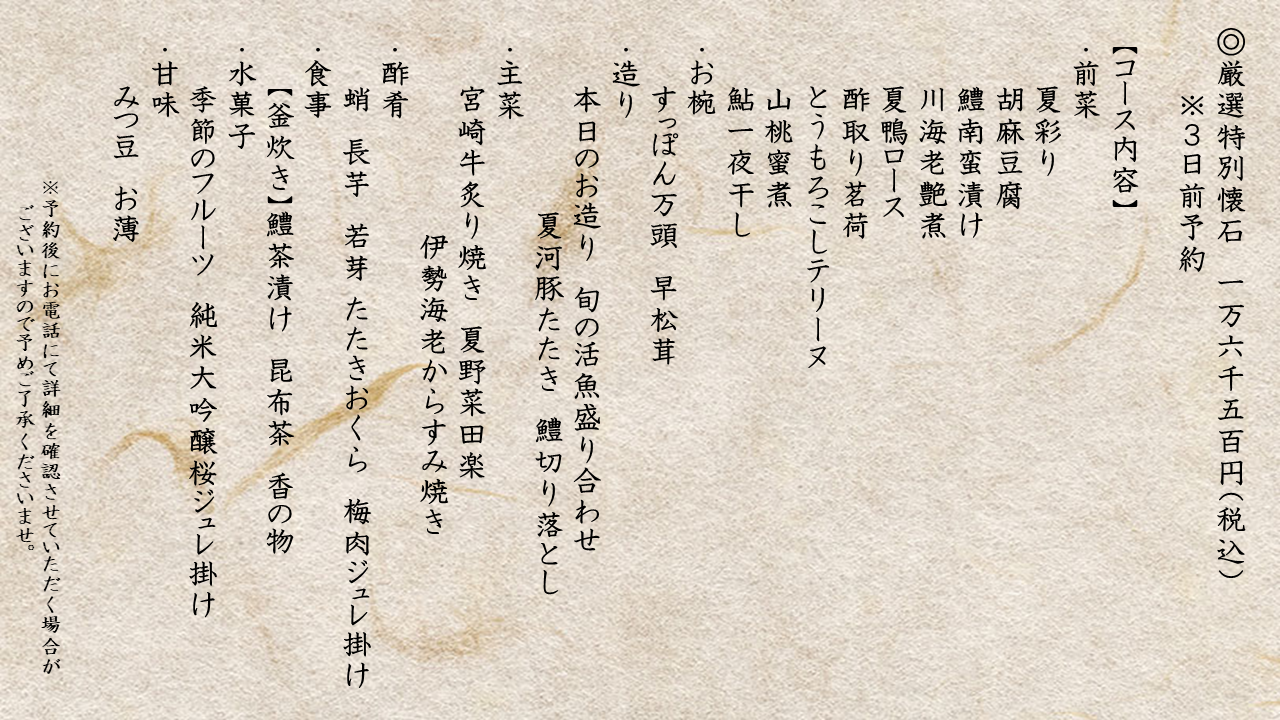 ◎厳選特別懐石　一万六千五百円（税込）
※３日前予約
【コース内容】
・前菜
夏彩り
胡麻豆腐
鱧南蛮漬け
川海老艶煮
夏鴨ロース
酢取り茗荷
とうもろこしテリーヌ
山桃蜜煮
鮎一夜干し
・お椀
すっぽん万頭　早松茸
・造り
本日のお造り　旬の活魚盛り合わせ
夏河豚たたき　鱧切り落とし
・主菜
宮崎牛炙り焼き　夏野菜田楽
伊勢海老からすみ焼き
・酢肴
蛸　長芋　若芽　たたきおくら　梅肉ジュレ掛け
・食事
【釜炊き】鱧茶漬け　昆布茶　香の物
・水菓子
季節のフルーツ　純米大吟醸桜ジュレ掛け
・甘味
みつ豆　お薄
※予約後にお電話にて詳細を確認させていただく場合が
ございますので予めご了承くださいませ。